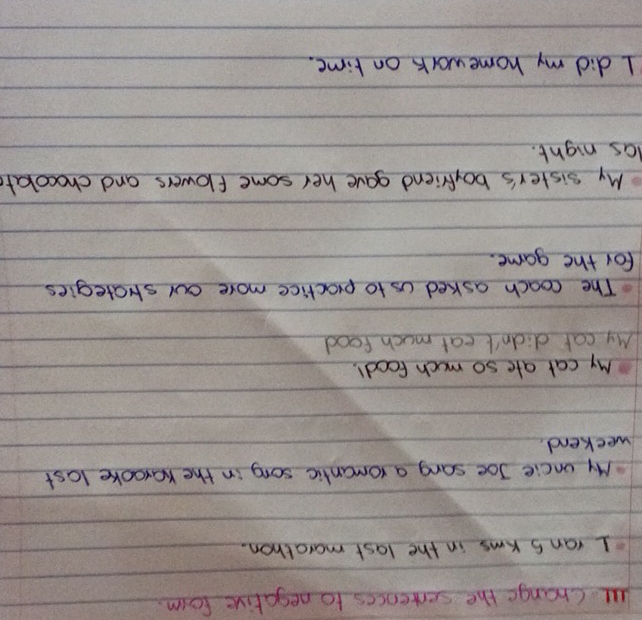 III Change the sentences to negative form.
• I ran 5 Kms in the last marathon.
• My uncle Joe sang a romantic song in the Karaoke last
weekend.
• My cat ate so much food!
My cat didn't eat much food
• The coach asked us to practice more our strategies
for the game.
• My sister's boyfriend gave her some flowers and chocolate
las night.
I did my homework on time.